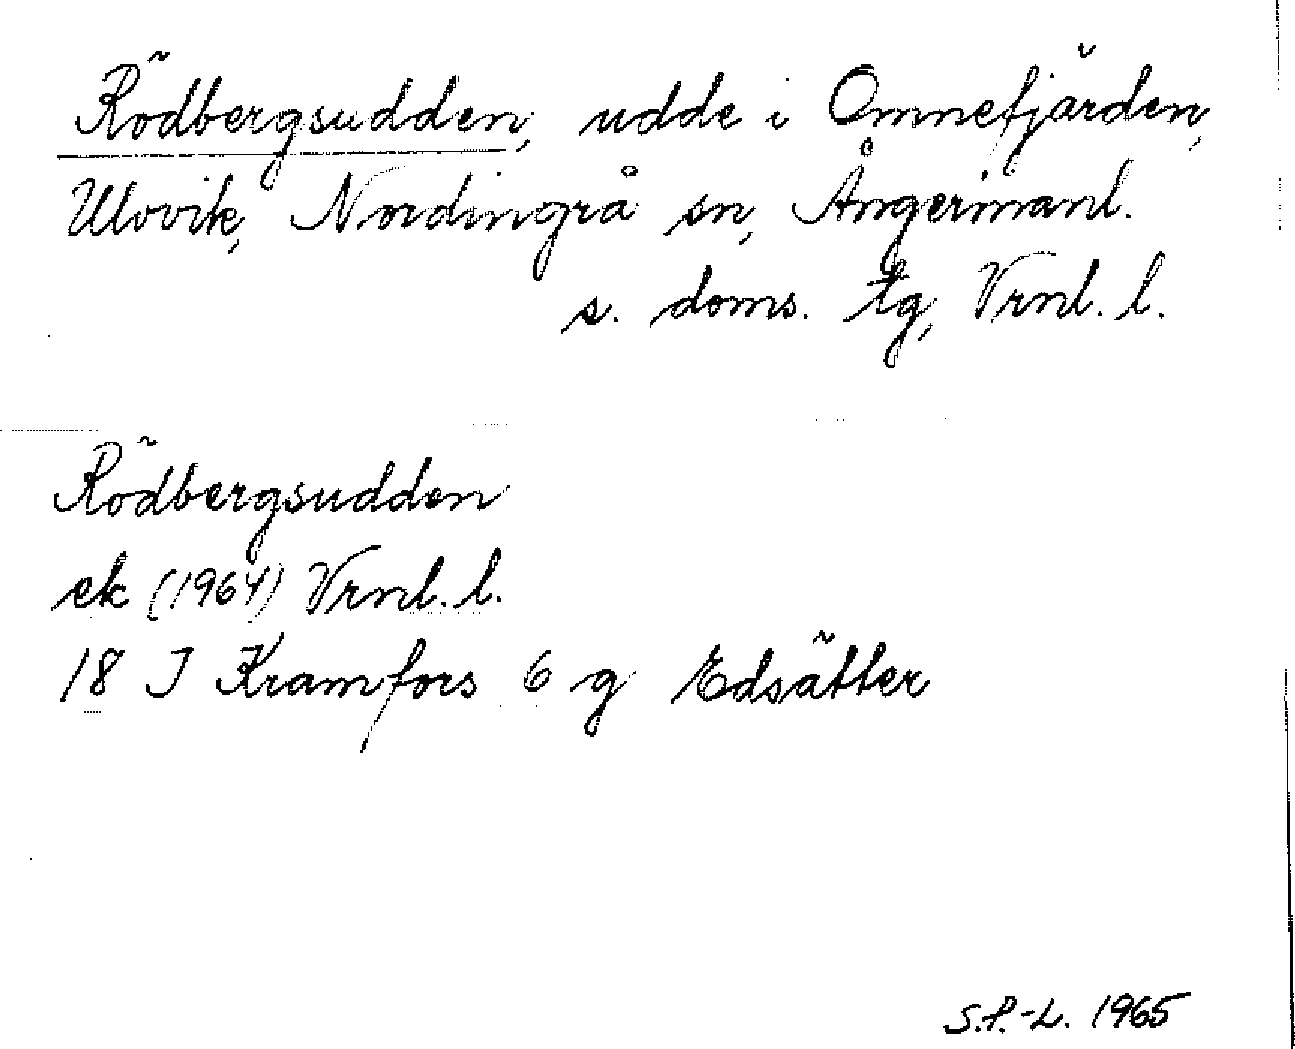 Rödbergsudden, udde i Omnefjärden,
Ulvvik, Nordingrå sn, Ångermanl.
s. doms. tg, Vrnl. l.
Rödbergsudden
ek (1964) Vrnl. l.
18 I Kramfors 6 g Edsätter
S.P.-L. 1965